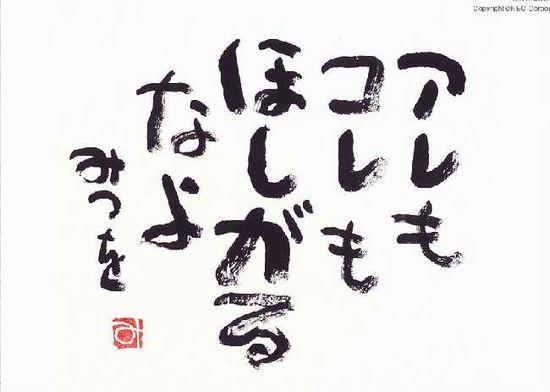 アレも
コレも
ほしがる
なよ
みつを
み
Copyright©NEC Corpor